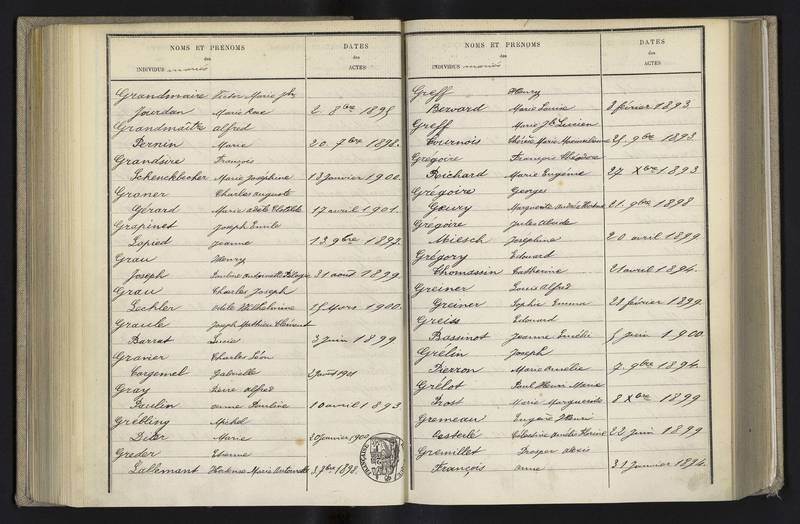 NOMS ET PRÉNOMS
des
INDIVIDUS mariés
DATES
des
ACTES
Grandmaire Victor Marie Jh
Jourdan Marie Rose 2 8bre 1895
Grandmaître Alfred
Pernin Marie 20. 7bre 1898.
Grandsire François
Schenckbecher Marie Joséphine 13 Janvier 1900.
Graner Charles Auguste
Gérard Marie Adèle Clotilde 17 avril 1901.
Grapinet Joseph Emile
Lopied Jeanne 13 9bre 1897.
Grau Henry
Joseph Pauline Antoinette 31 août 1899.
Grau Charles Joseph
Lechler Odile Wilhelmine 25 Mars 1900.
Graule Joseph Mathieu Clément
Barrat Lucie 3 Juin 1899
Gravier Charles Léon
Cargemel Gabrielle 2 août 1901
Gray Pierre Alfred
Paulin Anne Pauline 10 avril 1893
Grebling Michel
Dider Marie 20 Janvier 1900
Greder Etienne
Lallemant Hortense Marie 3 7bre 1898.
NOMS ET PRÉNOMS
des
INDIVIDUS mariés
DATES
des
ACTES
Greff Henry
Berward Marie Louise 8 février 1893.
Greff Marie Jh Lucien
Tournois Thérèse Marie 25. 9bre 1893.
Grégoire François Théodore
Richard Marie Eugénie 27 Xbre 1893
Grégoire Georges
Goury Marguerite Andrée 21. 9bre 1898
Grégoire Jules
Miesch Joséphine 20 avril 1899
Grégory Edouard
Thomassin Catherine 21 avril 1894.
Greiner Louis Alfred
Greiner Sophie Emma 28 février 1899.
Greiss Edouard
Bassinot Jeanne Emélie 5 Juin 1900.
Grélin Joseph
Pierron Marie Amélie 7. 9bre 1894.
Grélot Paul Henri Marie
Prost Marie Marguerite 8 Xbre 1899
Gremeau Eugène Henri
Oesterlé Célestine 22 Juin 1899
Gremillet Prosper Alexis
François Anne 31 Janvier 1894.